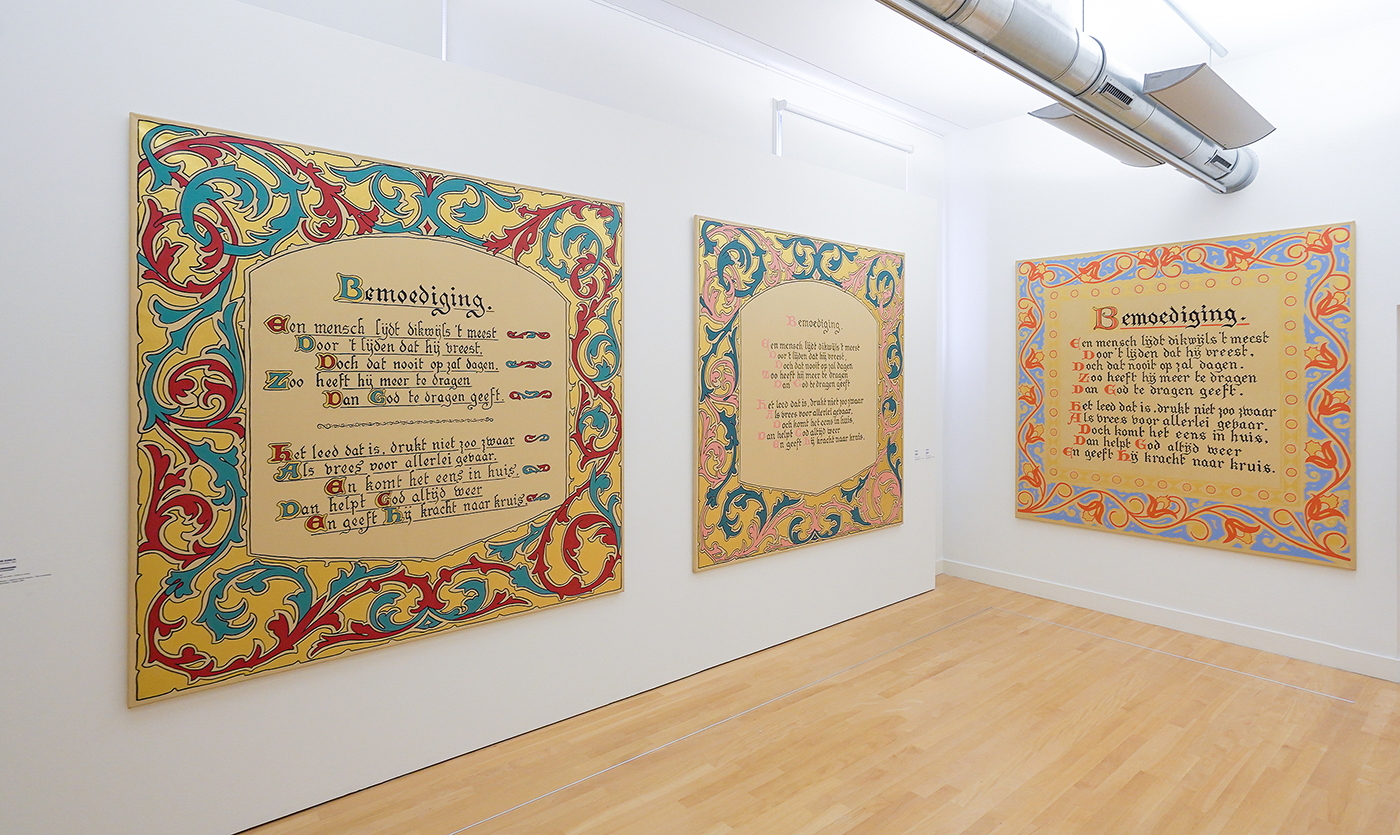 Bemoediging.
Een mensch lijdt dikwijls 't meest
Door 't lijden dat hij vreest.
Doch dat nooit op zal dagen.
Zoo heeft hij meer te dragen
Dan God te dragen geeft.
Het leed dat is, drukt niet zoo zwaar
Als vrees voor allerlei gevaar.
En komt het eens in huis,
Dan helpt God altijd weer
En geeft Hij kracht naar kruis.
Bemoediging.
Een mensch lijdt dikwijls 't meest
Door 't lijden dat hij vreest,
Doch dat nooit op zal dagen.
Zoo heeft hij meer te dragen
Dan God te dragen geeft
Het leed dat is, drukt niet zoo zwaar
Als vrees voor allerlei gevaar.
Doch komt het eens in huis,
Dan helpt God altijd weer
En geeft Hij kracht naar kruis.
Bemoediging.
Een mensch lijdt dikwijls 't meest
Door 't lijden dat hij vreest.
Doch dat nooit op zal dagen.
Zoo heeft hij meer te dragen
Dan God te dragen geeft.
Het leed dat is, drukt niet zoo zwaar
Als vrees voor allerlei gevaar.
Doch komt het eens in huis.
Dan helpt God altijd weer
En geeft Hij kracht naar kruis.